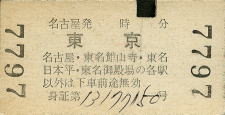 7797
名古屋発 時 分
東京
名古屋・東名舘山寺・東名
日本平・東名御殿場の各駅
以外は下車前途無効
身証第 号
7797